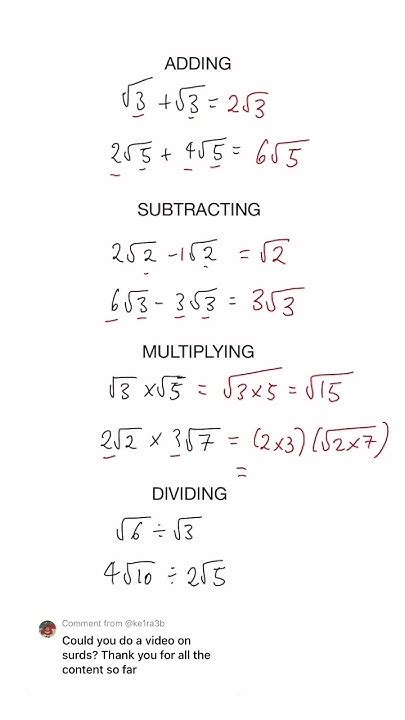 ADDING
√3 + √3 = 2√3
2√5 + 4√5 = 6√5
SUBTRACTING
2√2 - 1√2 = √2
6√3 - 3√3 = 3√3
MULTIPLYING
√3 × √5 = √3×5 = √15
2√2 × 3√7 = (2×3)(√2×7)
=
DIVIDING
√6 ÷ √3
4√10 ÷ 2√5
Comment from @ke1ra3b
Could you do a video on
surds? Thank you for all the
content so far